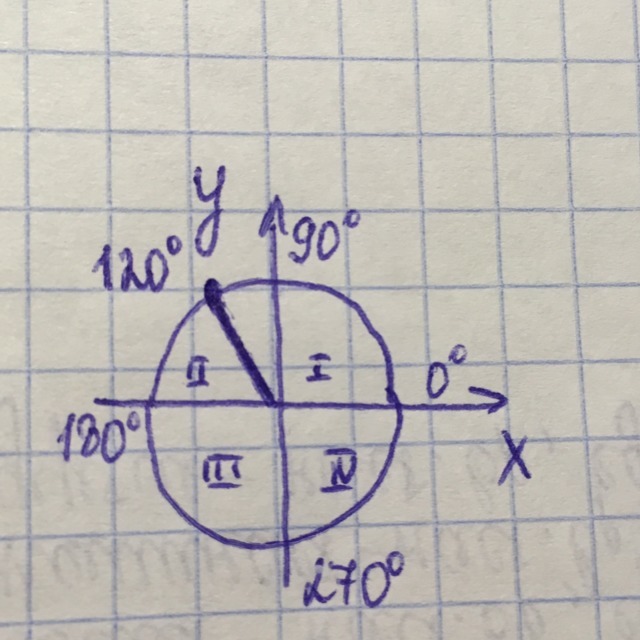 y
90°
120°
II
I
0°
180°
III
IV
x
270°